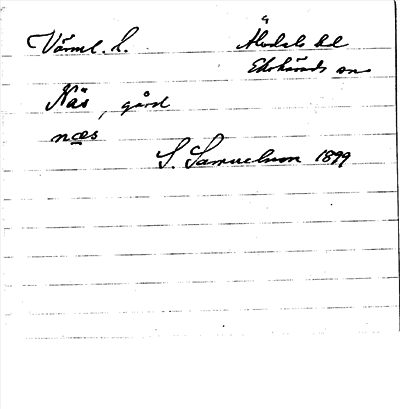 Värml. l. Älvdals hd
Ekshärads sn
Näs, gård
næs
S. Samuelsson 1899